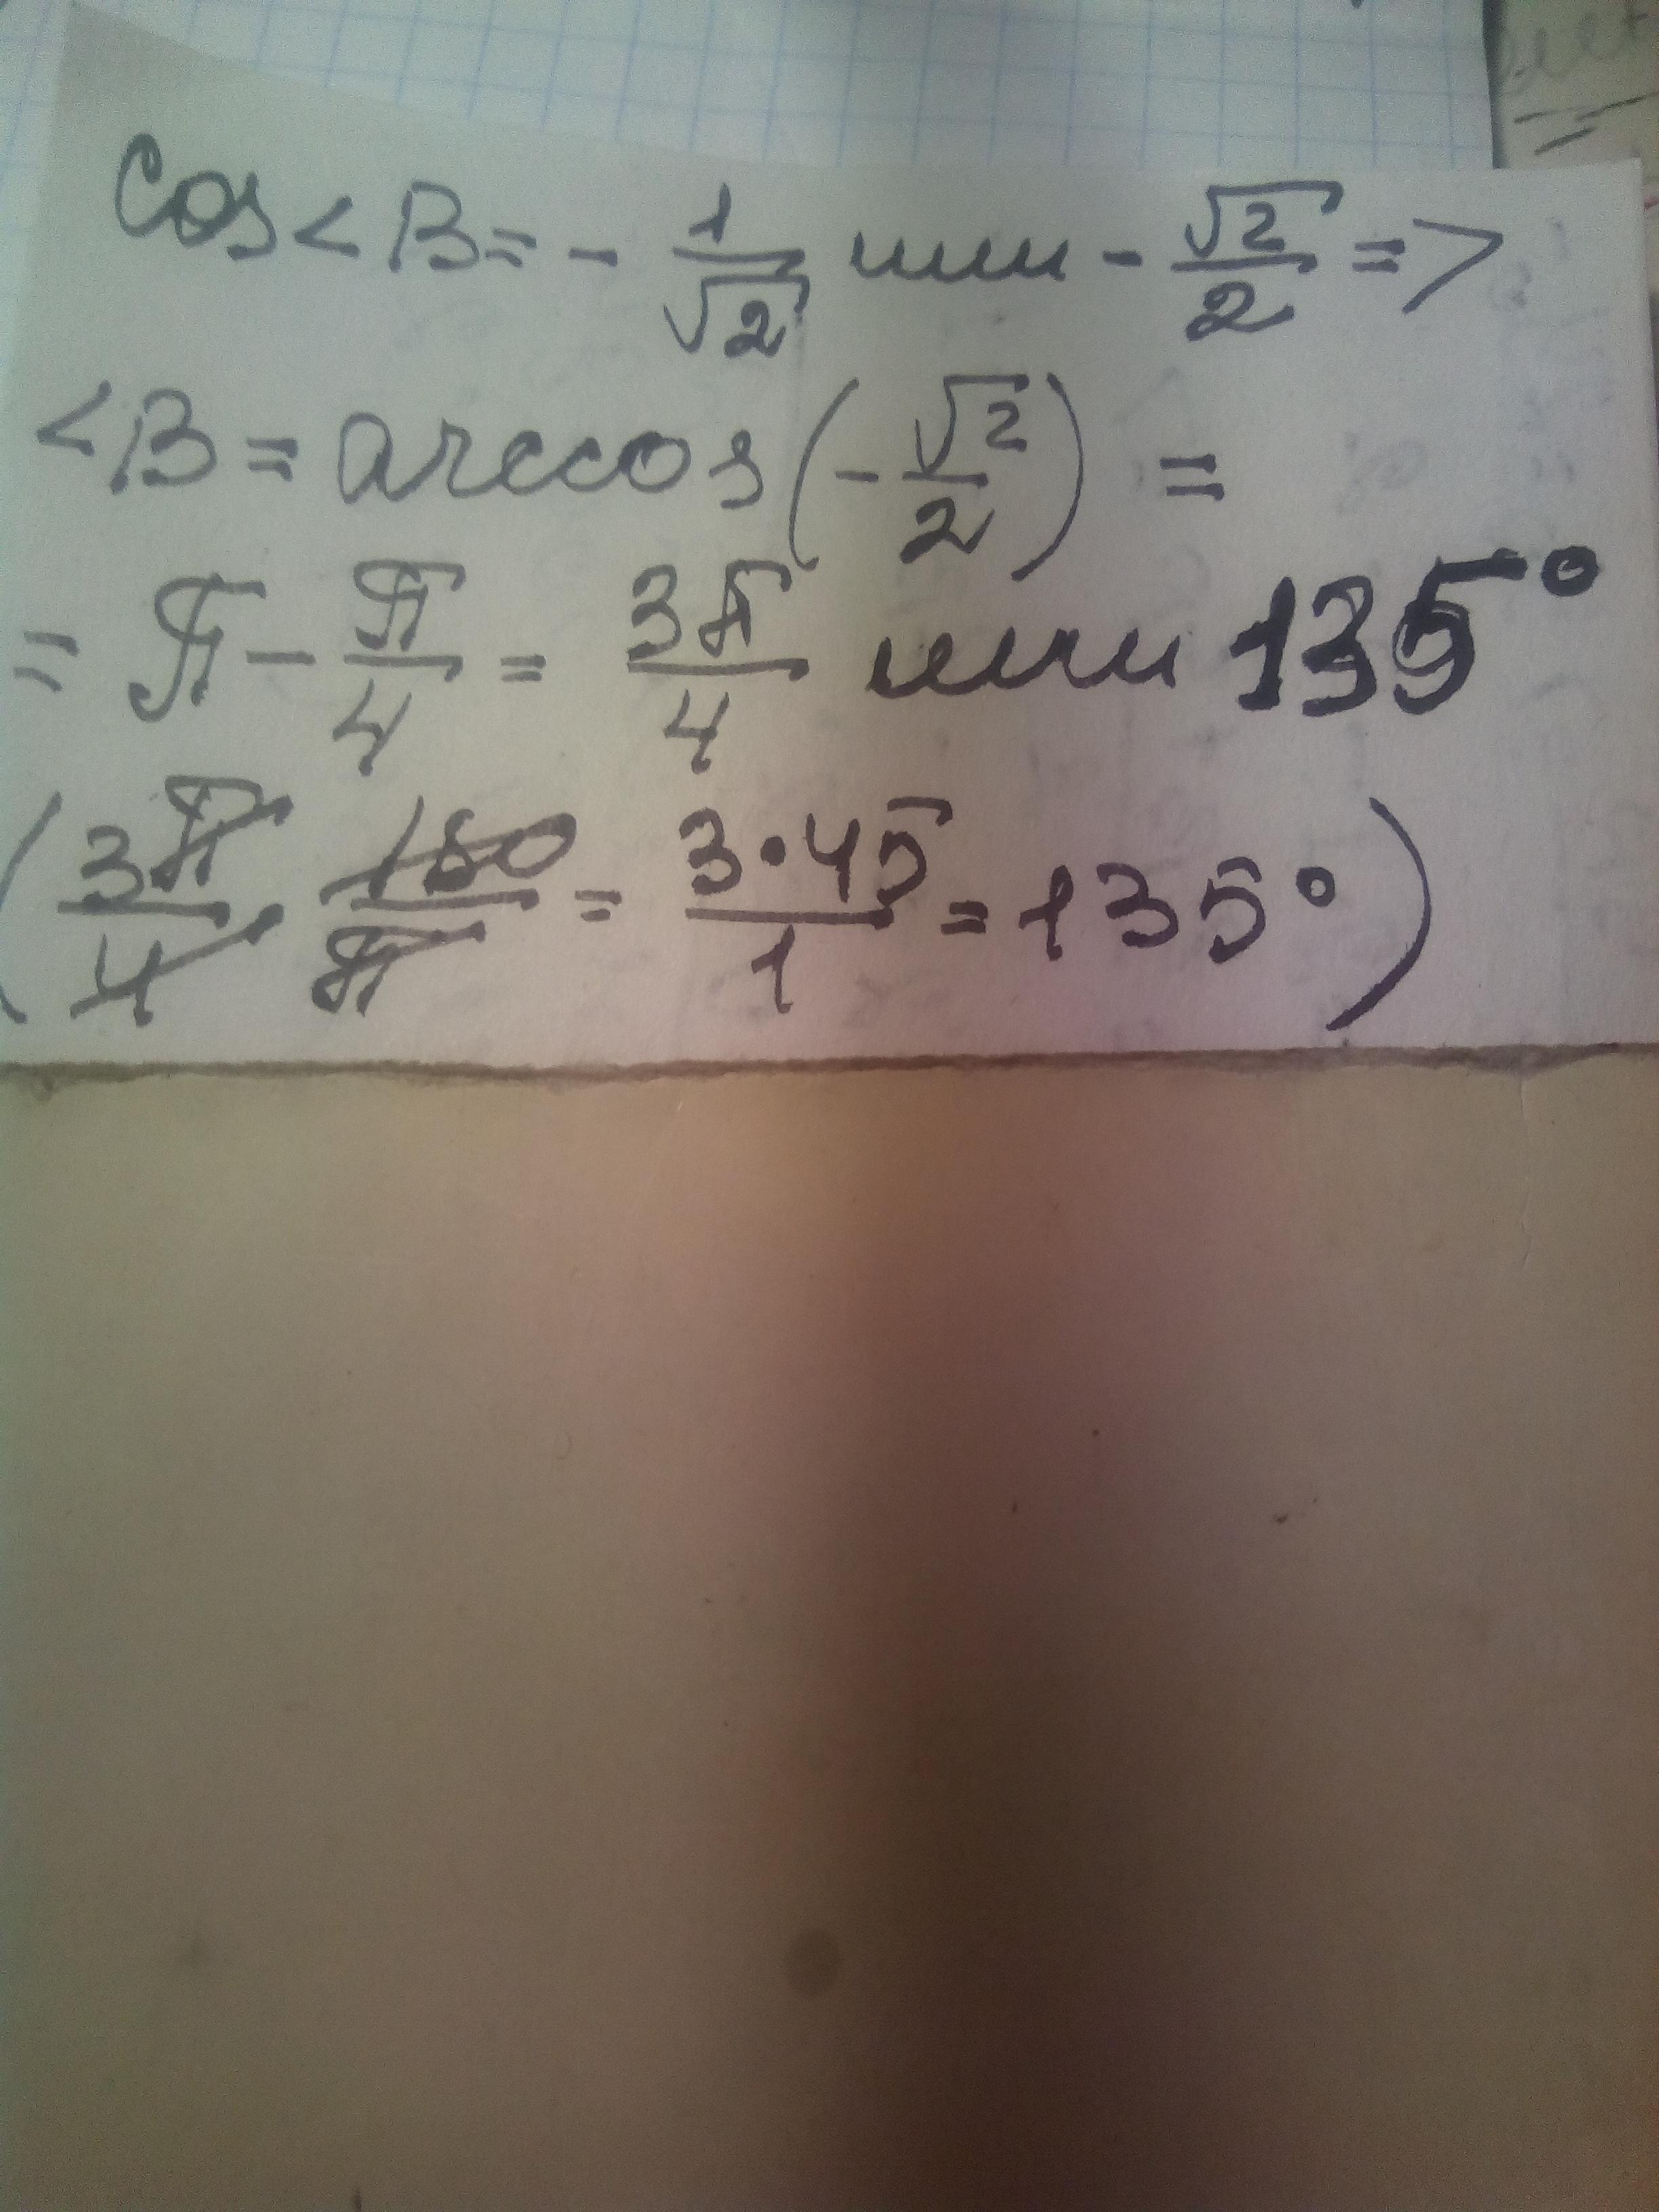 Cos < B = - 1/√2 или - √2/2 =>
< B = arccos (- √2/2) =
= π - π/4 = 3π/4 или 135°
(3π/4 · 180/π = 3·45/1 = 135°)